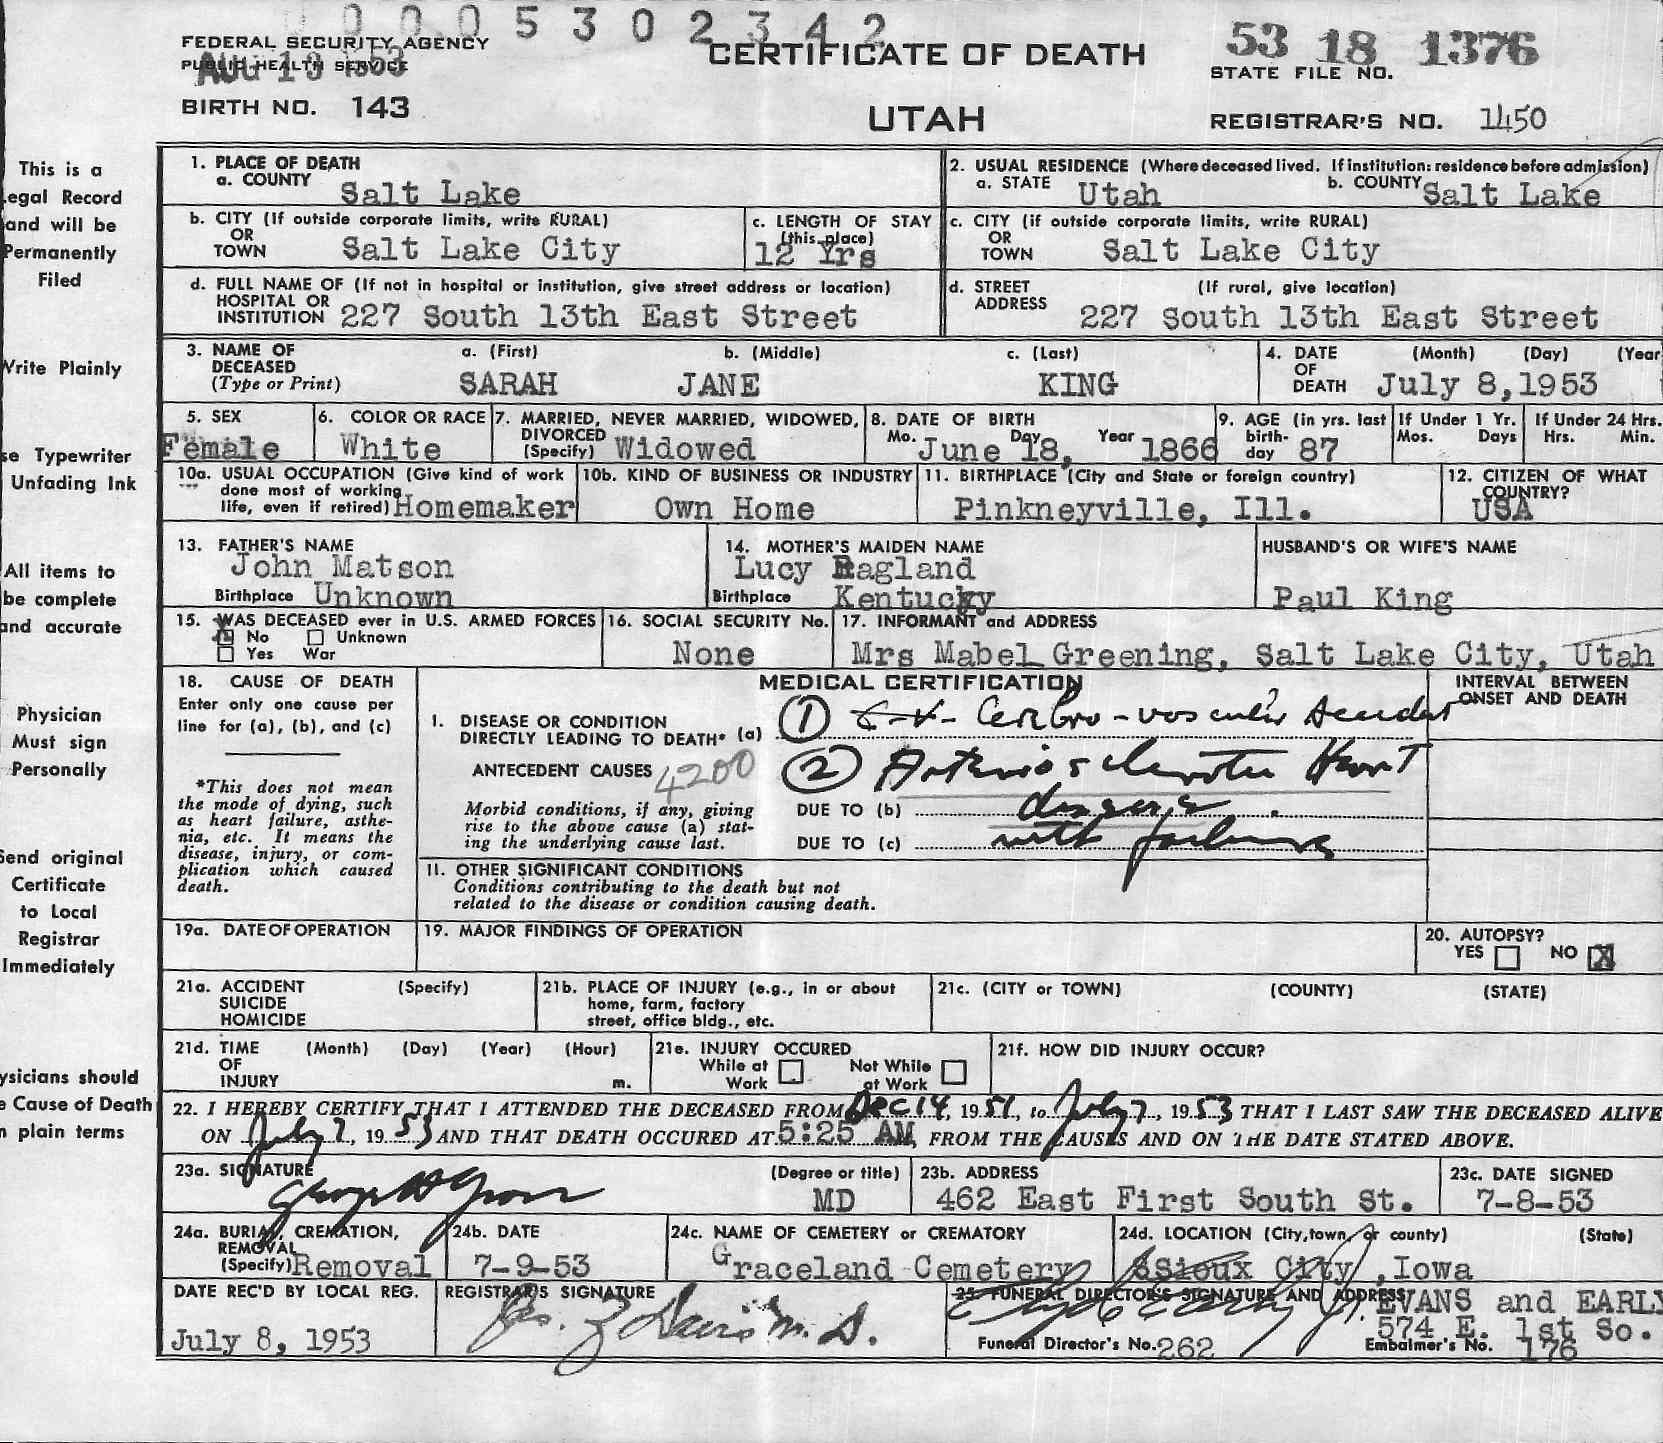 0 0 0 5 3 0 2 3 4 2
FEDERAL SECURITY AGENCY
PUBLIC HEALTH SERVICE
AUG 1953
BIRTH NO. 143
CERTIFICATE OF DEATH
UTAH
53 18 1376
STATE FILE NO.
REGISTRAR'S NO. 1450
This is a
Legal Record
and will be
Permanently
Filed
Write Plainly
se Typewriter
Unfading Ink
All items to
be complete
and accurate
Physician
Must sign
Personally
Send original
Certificate
to Local
Registrar
Immediately
ysicians should
e Cause of Death
n plain terms
1. PLACE OF DEATH
a. COUNTY Salt Lake
2. USUAL RESIDENCE (Where deceased lived. If institution: residence before admission)
a. STATE Utah b. COUNTY Salt Lake
b. CITY (If outside corporate limits, write RURAL)
OR
TOWN Salt Lake City
c. LENGTH OF STAY
(this place)
12 Yrs
c. CITY (if outside corporate limits, write RURAL)
OR
TOWN Salt Lake City
d. FULL NAME OF (If not in hospital or institution, give street address or location)
HOSPITAL OR
INSTITUTION 227 South 13th East Street
d. STREET (If rural, give location)
ADDRESS 227 South 13th East Street
3. NAME OF DECEASED (Type or Print)
a. (First) b. (Middle) c. (Last)
SARAH JANE KING
4. DATE OF DEATH (Month) (Day) (Year
July 8,1953
5. SEX
Female
6. COLOR OR RACE
White
7. MARRIED, NEVER MARRIED, WIDOWED,
DIVORCED
(Specify) Widowed
8. DATE OF BIRTH
Mo. Day Year
June 18, 1866
9. AGE (in yrs. last
birth-
day 87
If Under 1 Yr.
Mos. Days
If Under 24 Hrs.
Hrs. Min.
10a. USUAL OCCUPATION (Give kind of work
done most of working
life, even if retired) Homemaker
10b. KIND OF BUSINESS OR INDUSTRY
Own Home
11. BIRTHPLACE (City and State or foreign country)
Pinkneyville, Ill.
12. CITIZEN OF WHAT
COUNTRY?
USA
13. FATHER'S NAME
John Matson
Birthplace Unknown
14. MOTHER'S MAIDEN NAME
Lucy Ragland
Birthplace Kentucky
HUSBAND'S OR WIFE'S NAME
Paul King
15. WAS DECEASED ever in U.S. ARMED FORCES
X No Unknown
Yes War
16. SOCIAL SECURITY No.
None
17. INFORMANT and ADDRESS
Mrs Mabel Greening, Salt Lake City, Utah
18. CAUSE OF DEATH
Enter only one cause per
line for (a), (b), and (c)
*This does not mean
the mode of dying, such
as heart failure, asthe-
nia, etc. It means the
disease, injury, or com-
plication which caused
death.
MEDICAL CERTIFICATION
INTERVAL BETWEEN
ONSET AND DEATH
I. DISEASE OR CONDITION
DIRECTLY LEADING TO DEATH* (a) ① Cerebro-vascular Accident
ANTECEDENT CAUSES 4200 ② Arteriosclerotic Heart
Morbid conditions, if any, giving
rise to the above cause (a) stat-
ing the underlying cause last.
DUE TO (b) disease
DUE TO (c) with failure
11. OTHER SIGNIFICANT CONDITIONS
Conditions contributing to the death but not
related to the disease or condition causing death.
19a. DATE OF OPERATION
19. MAJOR FINDINGS OF OPERATION
20. AUTOPSY?
YES NO X
21a. ACCIDENT (Specify)
SUICIDE
HOMICIDE
21b. PLACE OF INJURY (e.g., in or about
home, farm, factory
street, office bldg., etc.
21c. (CITY or TOWN) (COUNTY) (STATE)
21d. TIME (Month) (Day) (Year) (Hour)
OF
INJURY m.
21e. INJURY OCCURED
While at Work Not While at Work
21f. HOW DID INJURY OCCUR?
22. I HEREBY CERTIFY THAT I ATTENDED THE DECEASED FROM Dec 14, 1951, to July 7, 1953 THAT I LAST SAW THE DECEASED ALIVE
ON July 7, 1953 AND THAT DEATH OCCURED AT 5:25 AM, FROM THE CAUSES AND ON THE DATE STATED ABOVE.
23a. SIGNATURE (Degree or title)
MD
23b. ADDRESS
462 East First South St.
23c. DATE SIGNED
7-8-53
24a. BURIAL, CREMATION,
REMOVAL
(Specify) Removal
24b. DATE
7-9-53
24c. NAME OF CEMETERY or CREMATORY
Graceland Cemetery
24d. LOCATION (City, town, or county) (State)
SSioux City ,Iowa
DATE REC'D BY LOCAL REG.
July 8, 1953
REGISTRAR'S SIGNATURE
25. FUNERAL DIRECTOR'S SIGNATURE AND ADDRESS
EVANS and EARLY
574 E. 1st So.
Funeral Director's No. 262
Embalmer's No. 176